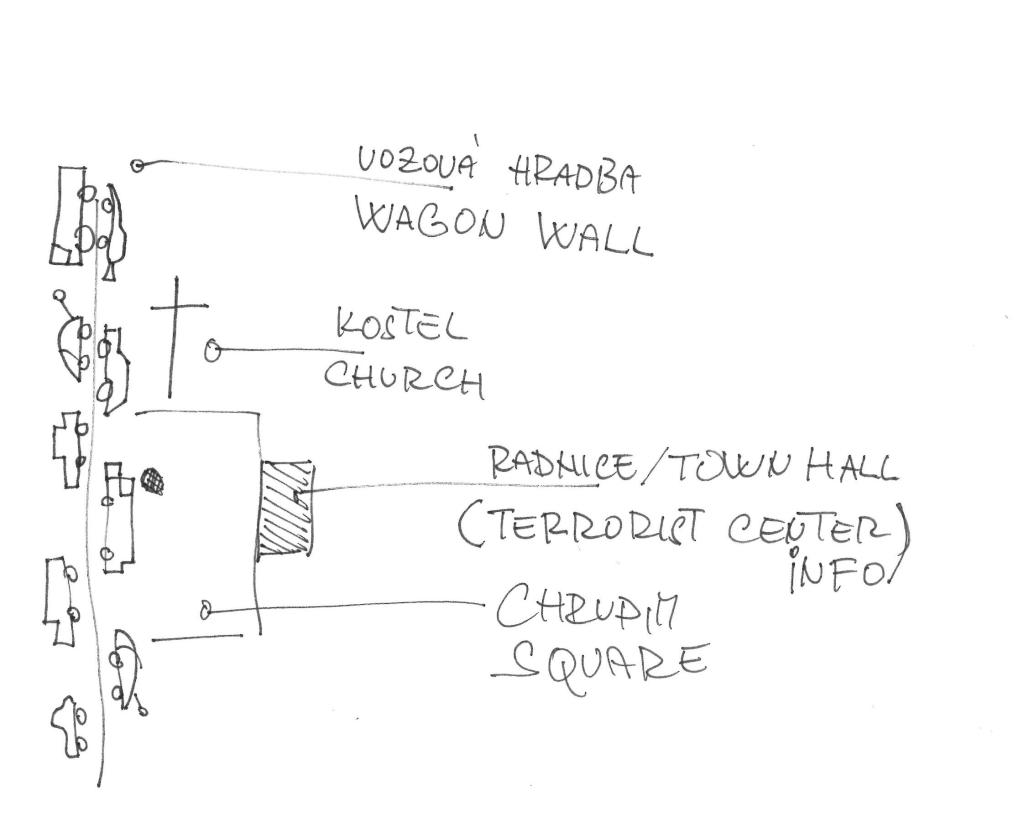 VOZOVÁ HRADBA
WAGON WALL
KOSTEL
CHURCH
RADNICE/TOWN HALL
(TERRORIST CENTER)
INFO
CHRUDIM
SQUARE